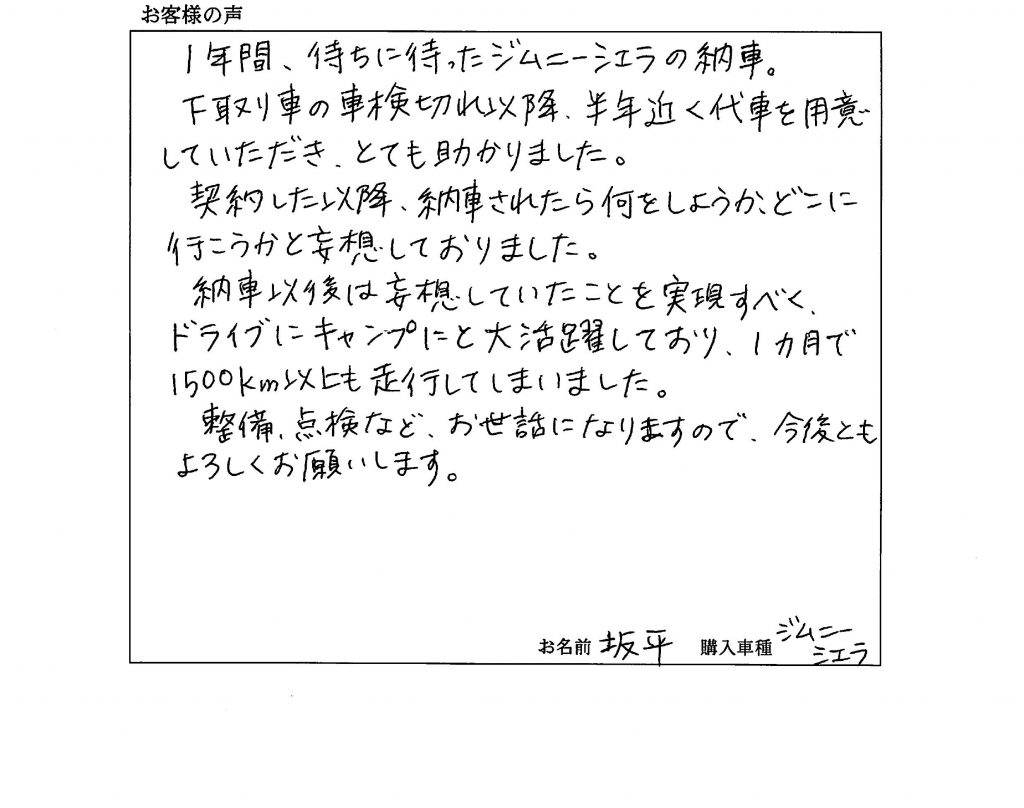 お客様の声
1年間、待ちに待ったジムニーシエラの納車。
下取り車の車検切れ以降、半年近く代車を用意
していただき、とても助かりました。
契約した以降、納車されたら何をしようか、どこに
行こうかと妄想しておりました。
納車以後は妄想していたことを実現すべく、
ドライブにキャンプにと大活躍しており、1カ月で
1500km以上も走行してしまいました。
整備、点検など、お世話になりますので、今後とも
よろしくお願いします。
お名前 坂平 購入車種 ジムニー
シエラ